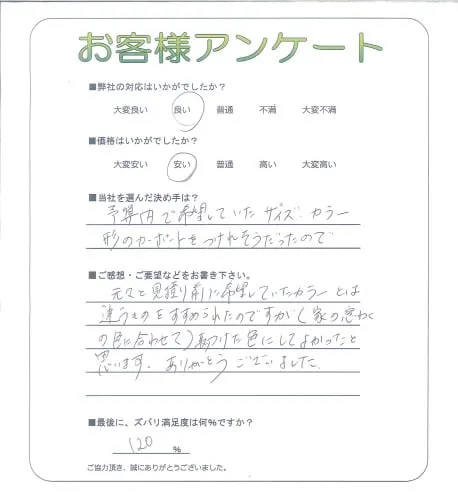 お客様アンケート
■弊社の対応はいかがでしたか？
大変良い 良い 普通 不満 大変不満
■価格はいかがでしたか？
大変安い 安い 普通 高い 大変高い
■当社を選んだ決め手は？
予算内で希望していたサイズ．カラー
形のカーポートをつけれそうだったので
■ご感想・ご要望などをお書き下さい。
元々と見積り前に希望していたカラーとは
違うものをすすめられたのですが（家の窓わく
の色に合わせて）つけた色にしてよかったと
思います．ありがとうございました．
■最後に、ズバリ満足度は何%ですか？
120 %
ご協力頂き、誠にありがとうございました。